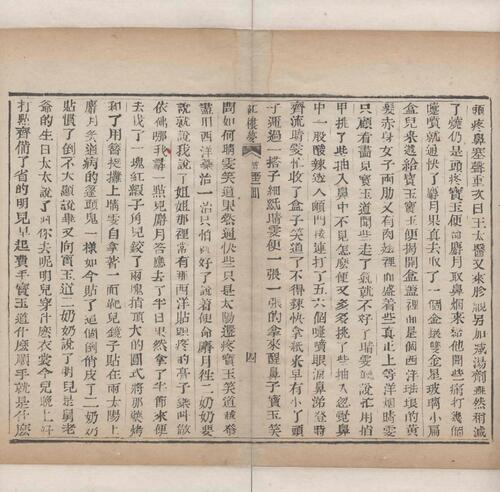 頭疼鼻塞聲重次日王太醫又來胗視另加减湯劑雖然稍减
了燒仍是頭疼寶玉便命麝月取鼻烟來給他聞些痛打幾個
嚏噴就通快了麝月果真去取了一個金鑲雙金星玻璃小扁
盒兒來遞給寶玉寶玉便揭開盒盖裡面是個西洋琺瑯的黄
髮赤身女子兩肋又有肉翅裡面盛着些真正上等洋烟晴雯
只顧看畫兒寶玉道聞些走了氣就不好了晴雯聽說忙用指
甲挑了些抽入鼻中不見怎麽便又多多挑了些抽入忽覺鼻
中一股酸辣透入顖門接連打了五六個嚏噴眼淚鼻涕登時
齊流晴雯忙收了盒子笑道了不得辣快拿紙來早有小丫頭
子遞過一搭子細紙晴雯便一張一張的拿來醒鼻子寶玉笑
紅樓夢 第五二囬 四
問如何晴雯笑道果然通快些只是太陽還疼寶玉笑道越發
盡用西洋藥治一治只怕就好了說着便命麝月往二奶奶要
去就說我說了姐姐那裡常有那西洋貼頭疼的膏子藥叫做
依佛哪我尋一點兒麝月答應去了半日果然拿了半節來便
去找了一塊紅緞子角兒鉸了兩塊指頂大的圓式將那藥烤
和了用簪挺攤上晴雯自拿着一面靶兒鏡子貼在兩太陽上
麝月笑道病的蓬頭鬼一樣如今貼了這個倒俏皮了二奶奶
貼慣了倒不大顯說畢又向寶玉道二奶奶說了明兒是舅老
爺的生日太太說了叫你去呢明兒穿什麽衣裳今兒晚上好
打點齊備了省的明兒早起費手寶玉道什麽順手就是什麽